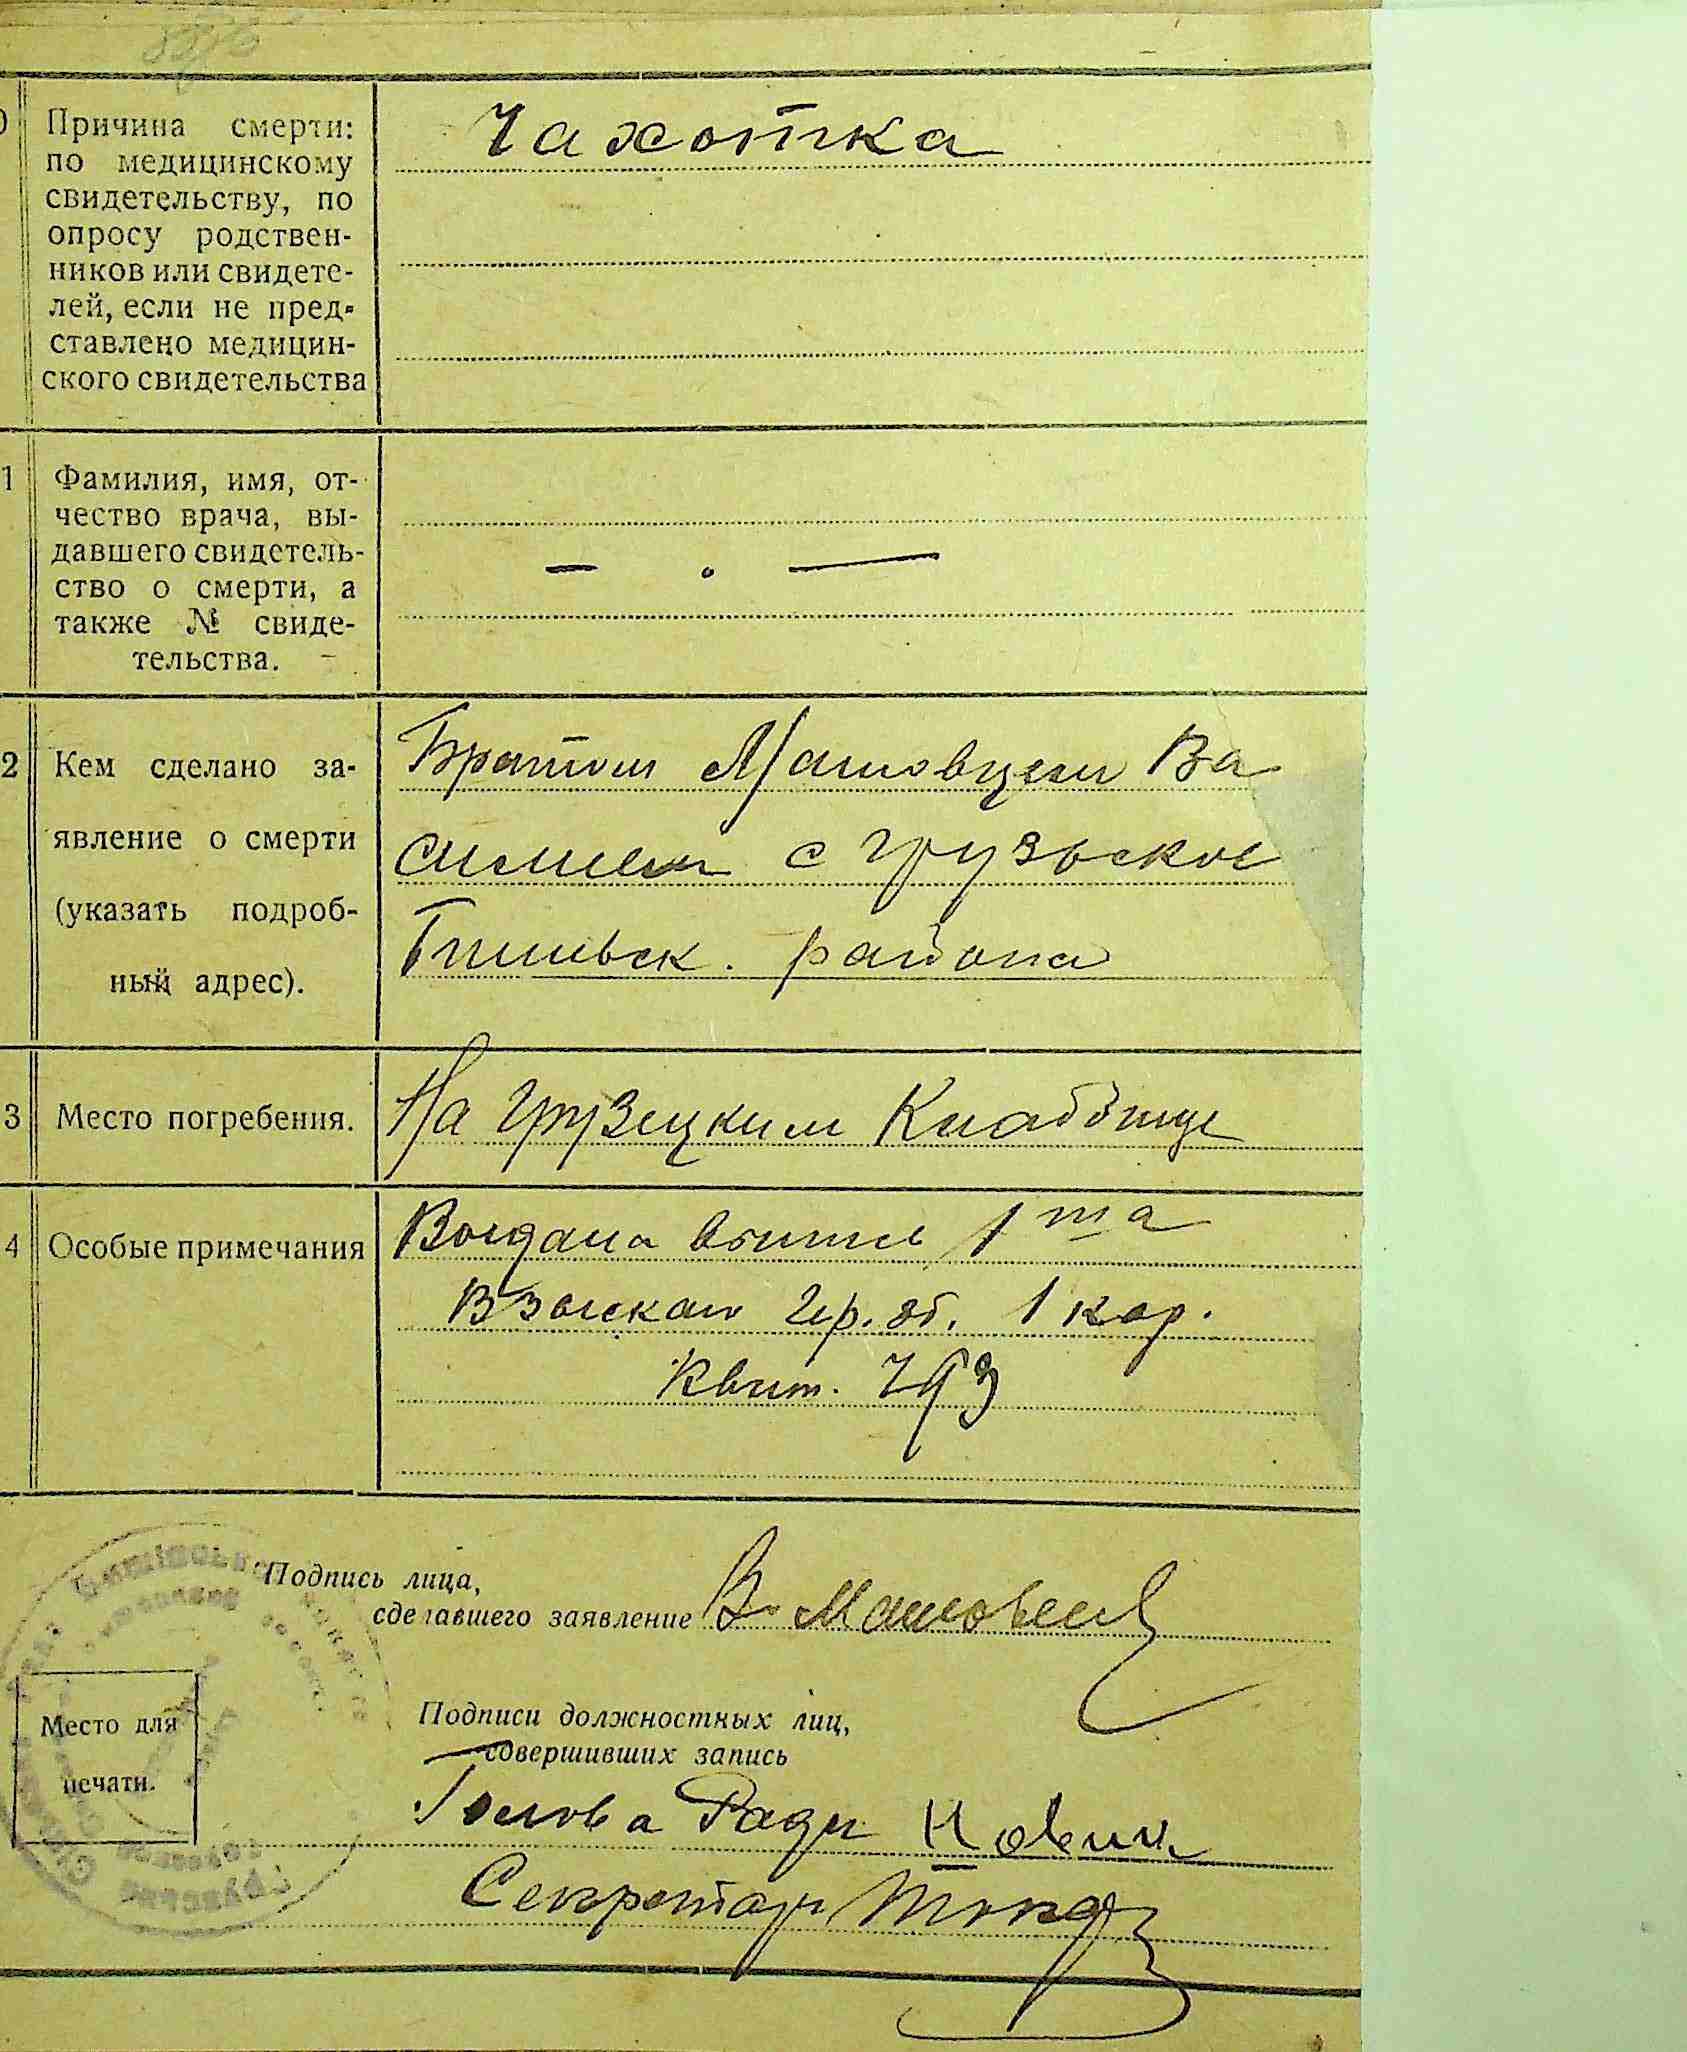 Причина смерти:
по медицинскому
свидетельству, по
опросу родствен-
ников или свидете-
лей, если не пред-
ставлено медицин-
ского свидетельства
Чахотка
1
Фамилия, имя, от-
чество врача, вы-
давшего свидетель-
ство о смерти, а
также № свиде-
тельства.
— . —
2
Кем сделано за-
явление о смерти
(указать подроб-
ный адрес).
Братом Ва
силием с Грузьское
района
3
Место погребения.
На Грузецким Кладбище
4
Особые примечания
1 та
Взыскано гер. зб. 1 кар.
Квит. 793
Подпись лица,
сделавшего заявление
В.
Место для
печати.
Подписи должностных лиц,
совершивших запись
Голова Ради Новик
Секретарь